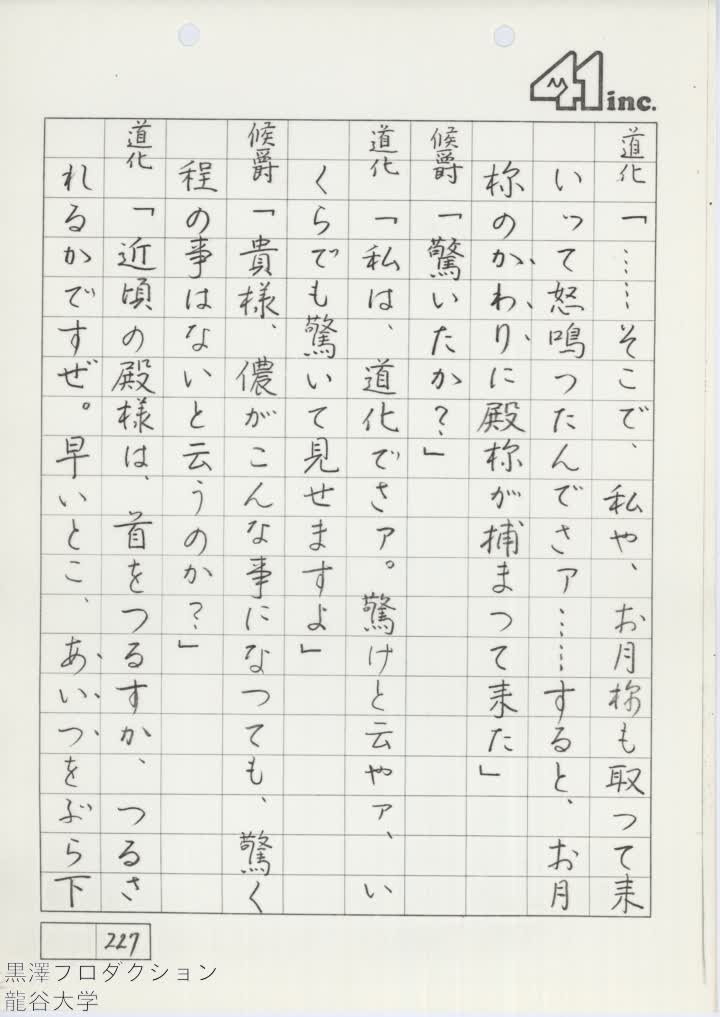 41 inc.
道化「……そこで、私や、お月様も取つて来
いって怒鳴つたんでさァ……すると、お月
様のかわりに殿様が捕まつて来た」
候爵「驚いたか?」
道化「私は、道化でさァ。驚けと云やァ、い
くらでも驚いて見せますよ」
候爵「貴様、儂がこんな事になつても、驚く
程の事はないと云うのか?」
道化「近頃の殿様は、首をつるすか、つるさ
れるかですぜ。早いとこ、あいつをぶら下
227
黒澤プロダクション
龍谷大学